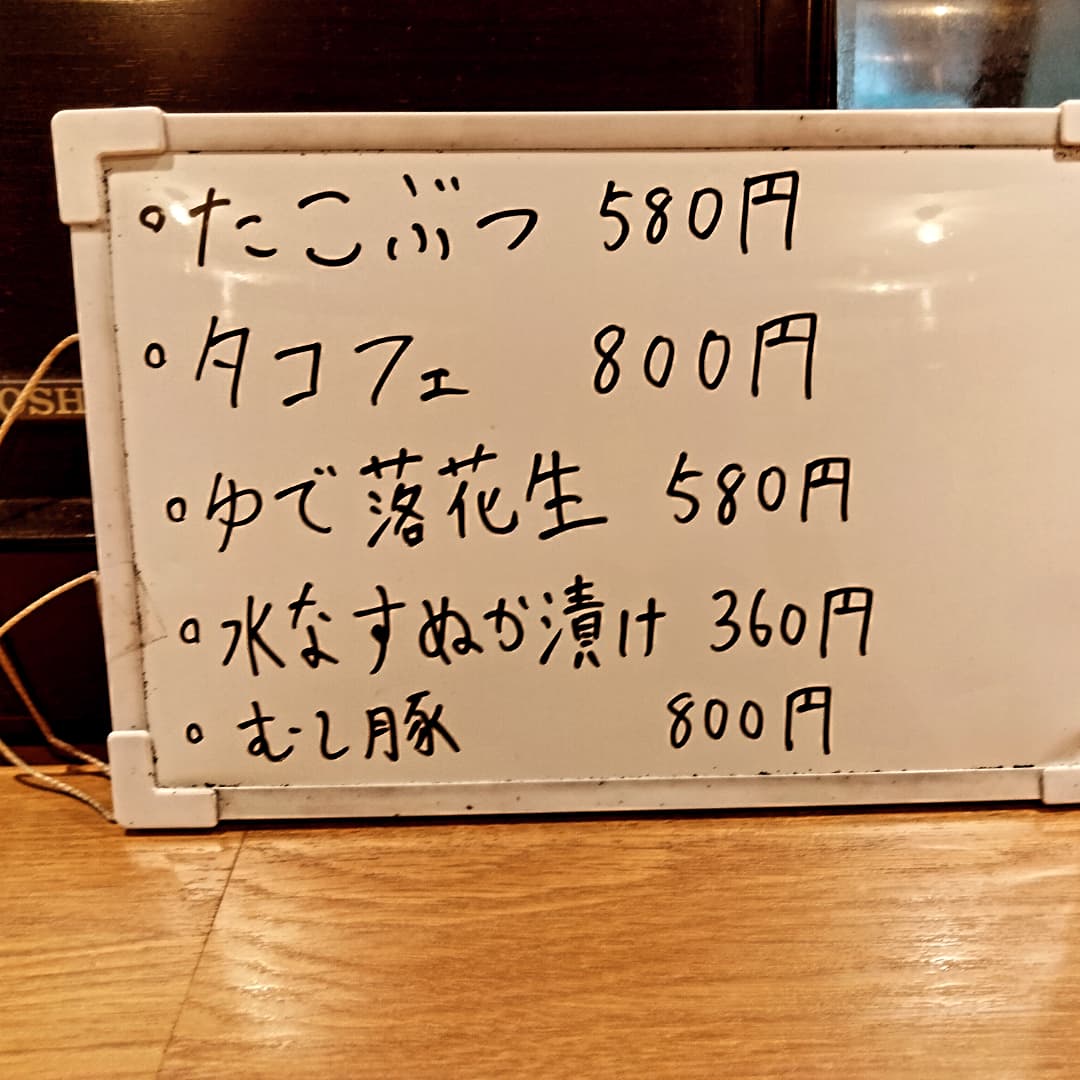 。たこぶつ 580円
。タコフェ 800円
。ゆで落花生 580円
。水なすぬか漬け 360円
。むし豚 800円
OSH